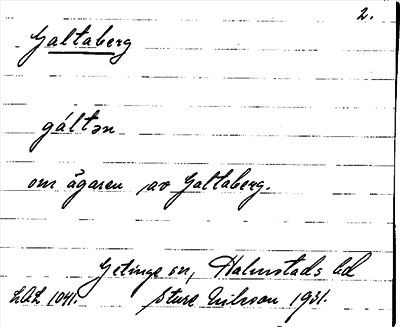 2.
Galtaberg
gáltən
om ägaren av Galtaberg.
Getinge sn, Halmstads hd
LAL 1041. Sture Nilsson 1931.